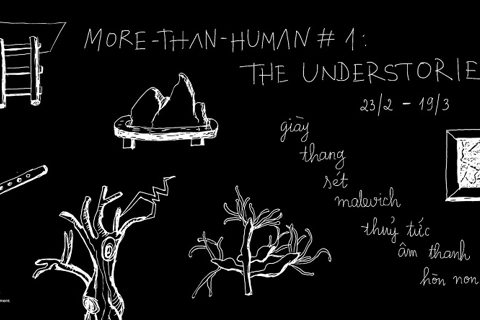 MORE-THAN-HUMAN # 1:
THE UNDERSTORIE
23/2 - 19/3
giày
thang
sét
malevich
thuỷ tức
âm thanh
hòn non